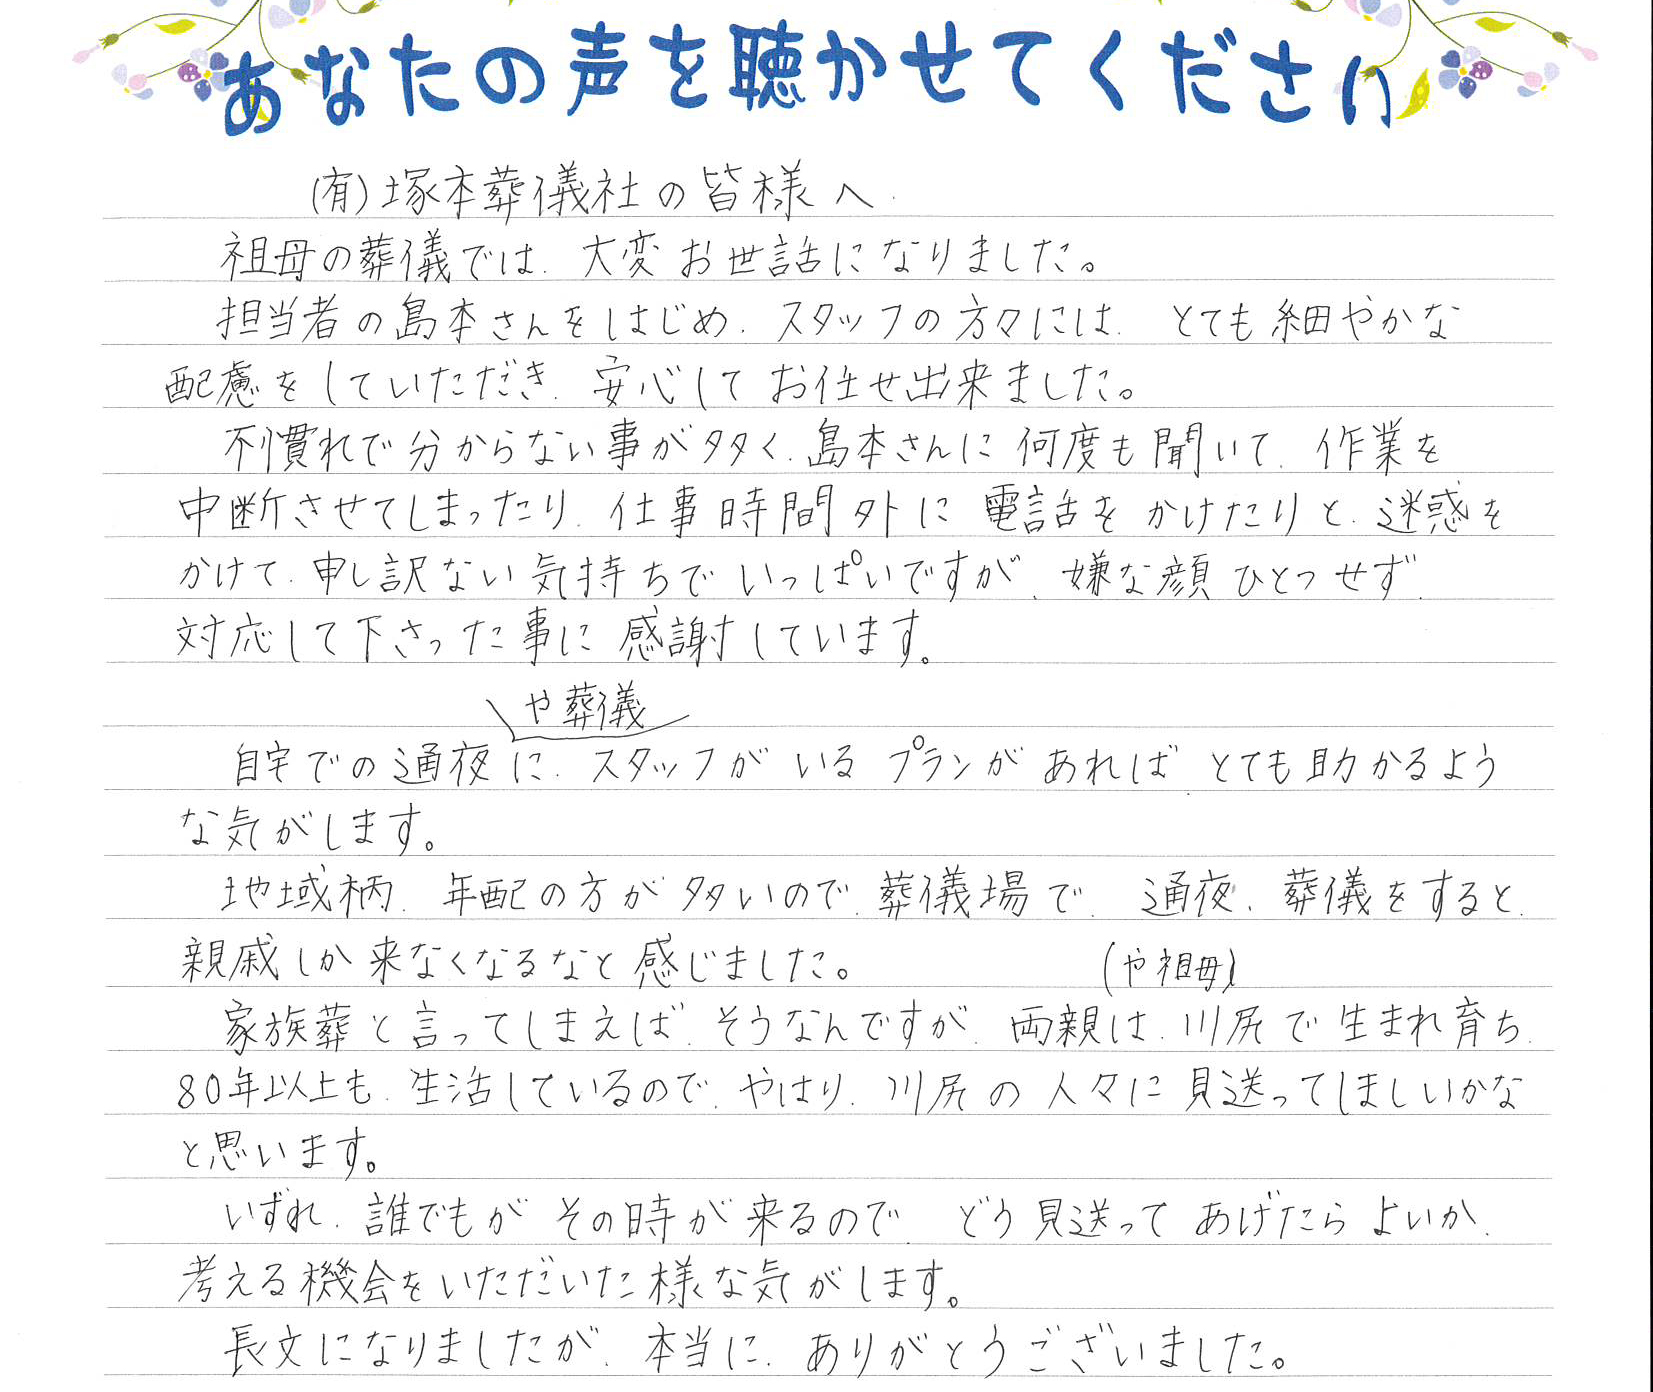 あなたの声を聴かせてください
(有)塚本葬儀社の皆様へ
祖母の葬儀では、大変お世話になりました。
担当者の島本さんをはじめ、スタッフの方々には、とても細やかな
配慮をしていただき、安心してお任せ出来ました。
不慣れで分からない事が多く、島本さんに何度も聞いて、作業を
中断させてしまったり、仕事時間外に電話をかけたりと、迷惑を
かけて、申し訳ない気持ちでいっぱいですが、嫌な顔ひとつせず、
対応して下さった事に感謝しています。
や葬儀
自宅での通夜に、スタッフがいるプランがあればとても助かるよう
な気がします。
地域柄、年配の方が多いので、葬儀場で、通夜、葬儀をすると、
親戚しか来なくなるなと感じました。
(や祖母)
家族葬と言ってしまえば、そうなんですが、両親は、川尻で生まれ育ち、
80年以上も、生活しているので、やはり、川尻の人々に見送ってほしいかな
と思います。
いずれ、誰でもがその時が来るので、どう見送ってあげたらよいか、
考える機会をいただいた様な気がします。
長文になりましたが、本当に、ありがとうございました。